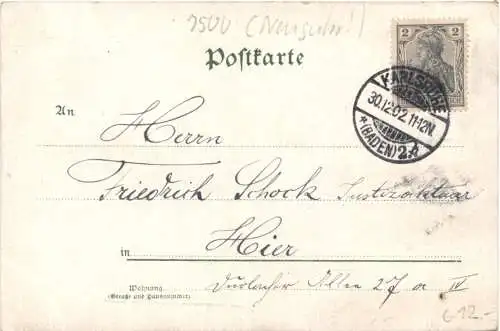 7500 (Neujahr!)
Postkarte
2 2
KARLSRUHE
30.12.02.11-12N.
*(BADEN)2.
An
Herrn
Friedrich Schock Justizaktuar
in Hier
Wohnung
(Straße und Hausnummer)
Durlacher Allee 27 a IV
G12.-